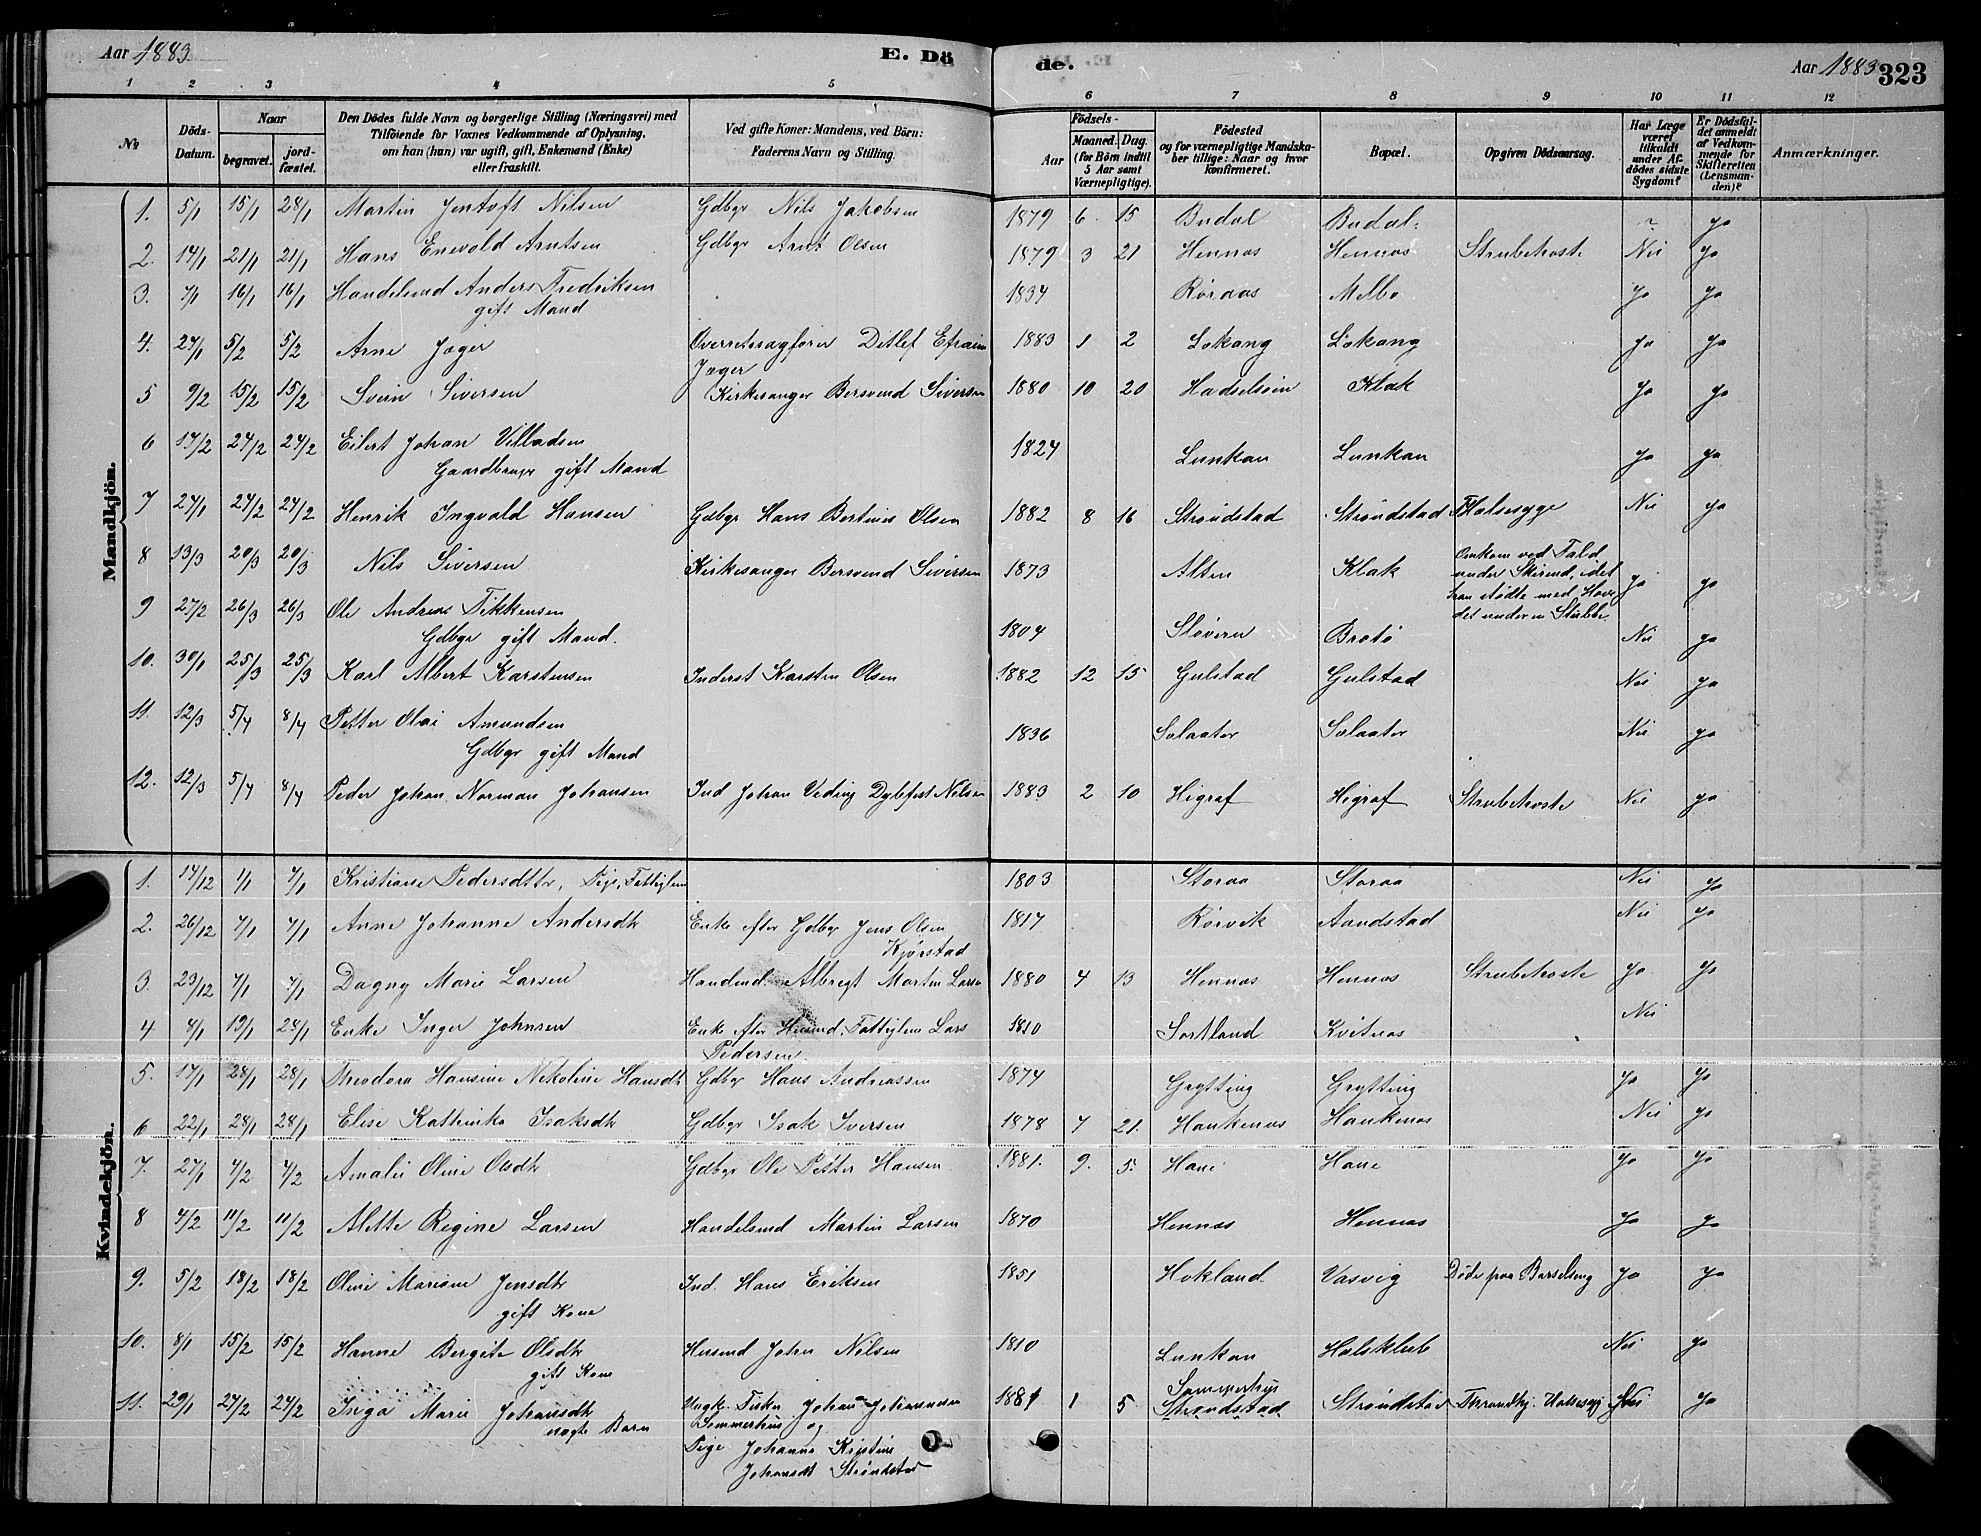 Aar 1883.
E. Dö
de.
Aar 1883
323
1 2 3 4 5 6 7 8 9 10 11 12
No
Döds-Datum.
Naar
begravet.
jord-fæstet.
Den Dödes fulde Navn og borgerlige Stilling (Næringsvei) med
Tilföiende for Voxnes Vedkommende af Oplysning,
om han (hun) var ugift, gift, Enkemand (Enke)
eller fraskilt.
Ved gifte Koner: Mandens, ved Börn:
Faderens Navn og Stilling.
Födsels-
Aar
Maaned. Dag.
(for Börn indtil
5 Aar samt
Værnepligtige).
Födested
og for værnepligtige Mandska-
ber tillige: Naar og hvor
konfirmeret.
Bopæl.
Opgiven Dödsaarsag.
Har Læge
været
tilkaldt
under Af-
dödes sidste
Sygdom?
Er Dödsfal-
det anmeldt
af Vedkom-
mende for
Skifteretten
(Lensman-
den)?
Anmærkninger.
Mandkjön.
1. 5/1 15/1 28/1 Martin Jentoft Nilsen Gdbgr Nils Jakobsen 1879 6. 15 Budal Budal. Ja
2. 14/1 21/1 21/1 Hans Enevold Arntsen Gdbgr Arnt Olsen 1879 3 21 Hennæs Hennæs Strubehoste Nei Ja
3. 7/1 16/1 16/1 Handelsmd Anders Fredriksen 1834 Røraas Melbo Ja Ja
gift Mand
4. 27/1 5/2 5/2 Arne Jæger Overretssagfører Ditlef Efraim 1883 1 2 Løkang Løkang Ja Ja
Jæger
5 9/2 15/2 15/2 Svein Siversen Kirkesanger Bersvend Siversen 1880 10 20 Hadseløien Klak Ja Ja
6 17/2 24/2 24/2 Eilert Johan Villadsen 1824 Lunkan Lunkan Ja Ja
Gaardbruger gift Mand
7 27/1 24/2 24/2 Henrik Ingvald Hansen Gdbgr Hans Bertinus Olsen 1882 8 16 Strøndstad Strøndstad Halssyge Nei Ja
8 13/3 20/3 20/3 Nils Siversen Kirkesanger Bersvend Siversen 1873 Alten Klak Omkom ved Fald Ja Ja
under Skirend, idet
han stødte med Hove
det under en Stubbe
9 27/2 26/3 26/3 Ole Andreas Tikkensen
Gdbgr gift Mand. 1804 Støvern Brotø Nei Ja
10. 30/1 25/3 25/3 Karl Albert Karstensen Inderst Karsten Olsen 1882 12 15 Gulstad Gulstad Nei Ja
11. 12/3 5/4 8/4 Petter Olai Amundsen 1836 Sølaater Sølaater Nei Ja
Gdbgr gift Mand
12. 12/3 5/4 8/4 Peder Johan Norman Johansen Ind Johan Veding Dybfest Nilsen 1883 2 10 Higraf Higraf Strubehoste Nei Ja
Kvindekjön.
1. 14/12 7/1 7/1 Kristiane Pedersdtr, Pige, Fattiglem 1803 Storaa Storaa Nei Ja
2. 26/12 7/1 7/1 Anne Johanne Andersdtr Enke efter Gdbgr Jens Olsen 1817 Rørvik Aandstad Nei Ja
Kjørstad
3. 23/12 7/1 7/1 Dagny Marie Larsen Handmd. Albregt Martin Larsen 1880 4 13 Hennæs Hennæs Strubehoste Ja Ja
4 8/1 19/1 28/1 Enke Inger Johnsen Enke efter Husmd, Fattiglem Lars 1810 Sortland Kvitnæs Nei
Pedersen
5. 17/1 28/1 28/1 Theodora Hansine Nikoline Hansdtr Gdbgr Hans Andreassen 1874 Grytting Grytting Ja Ja
6 22/1 28/1 28/1 Elise Kathinka Isaksdtr Gdbgr Isak Iversen 1878 7 21. Haukenæs Haukenæs Nei Ja
7. 27/1 4/2 4/2 Amalie Oline Olsdtr Gdbgr Ole Petter Hansen 1881. 9. 5. Hane Hane Ja Ja
8 4/2 11/2 11/2 Alette Regine Larsen Handelsmd Martin Larsen 1870 Hennæs Hennæs Ja Ja
9. 5/2 18/2 18/2 Oline Mariane Jensdtr Ind. Hans Eriksen 1851 Hokland Vasvig Døde paa Barselseng Ja Ja
gift Kone
10. 8/1 15/2 15/2 Hanne Bergite Olsdtr Husmd John Nilsen 1810 Lunkan Halsklub Nei Ja
gift Kone
11. 29/1 24/2 24/2 Inga Marie Johansdtr Ungk. Fisker Johan Johannesen 1881 1 5 Sommerhus Strøndstad Nei Ja
uægte Barn Sommerhus og Strøndstad
Pige Johanna Kristine
Johansdt Strøndstad